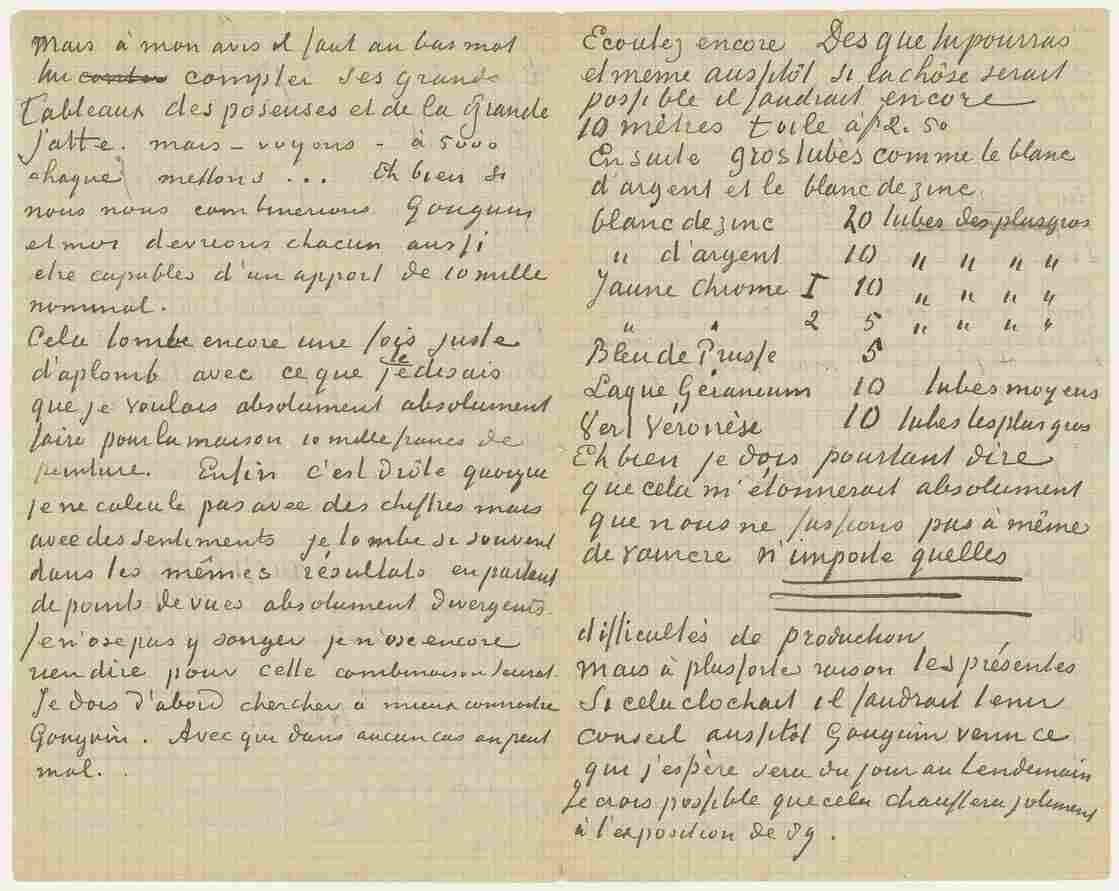 Mais à mon avis il faut au bas mot
lui compter ses grands
Tableaux des poseuses et de la Grande
Jatte. mais – voyons – à 5000
chaque mettons ... Eh bien si
nous nous combinerions Gauguin
et moi devrions chacun aussi
etre capables d'un apport de 10 mille
nominal.
Cela tombe encore une fois juste
d'aplomb avec ce que je te disais
que je voulais absolument absolument
faire pour la maison 10 mille francs de
peinture. Enfin c'est drôle quoique
je ne calcule pas avec des chiffres mais
avec des sentiments je tombe si souvent
dans les mêmes résultats en partant
de points de vues absolument divergents.
Je n'ose pas y songer je n'ose encore
rien dire pour cette combinaison Seurat.
Je dois d'abord chercher à mieux connaitre
Gauguin. Avec qui dans aucun cas on peut
mal.
Ecoutez encore Des que tu pourras
et meme aussitôt si la chôse serait
possible il faudrait encore
10 mètres toile à f 2.50
Ensuite gros tubes comme le blanc
d'argent et le blanc de zinc.
blanc de zinc 20 tubes des plus gros
" d'argent 10 " " " "
Jaune Chrome I 10 " " " "
" " 2 5 " " " "
Bleu de Prusse 5
Laque Géranium 10 tubes moyens
Vert Véronèse 10 tubes les plus gros
Eh bien je dois pourtant dire
que cela m'étonnerait absolument
que nous ne fussions pas à même
de vaincre n'importe quelles
difficultés de production
Mais à plus forte raison les présentes
Si cela clochait il faudrait tenir
conseil aussitôt Gauguin venu ce
que j'espère sera du jour au lendemain
Je crois possible que cela chauffera joliment
à l'exposition de 89.